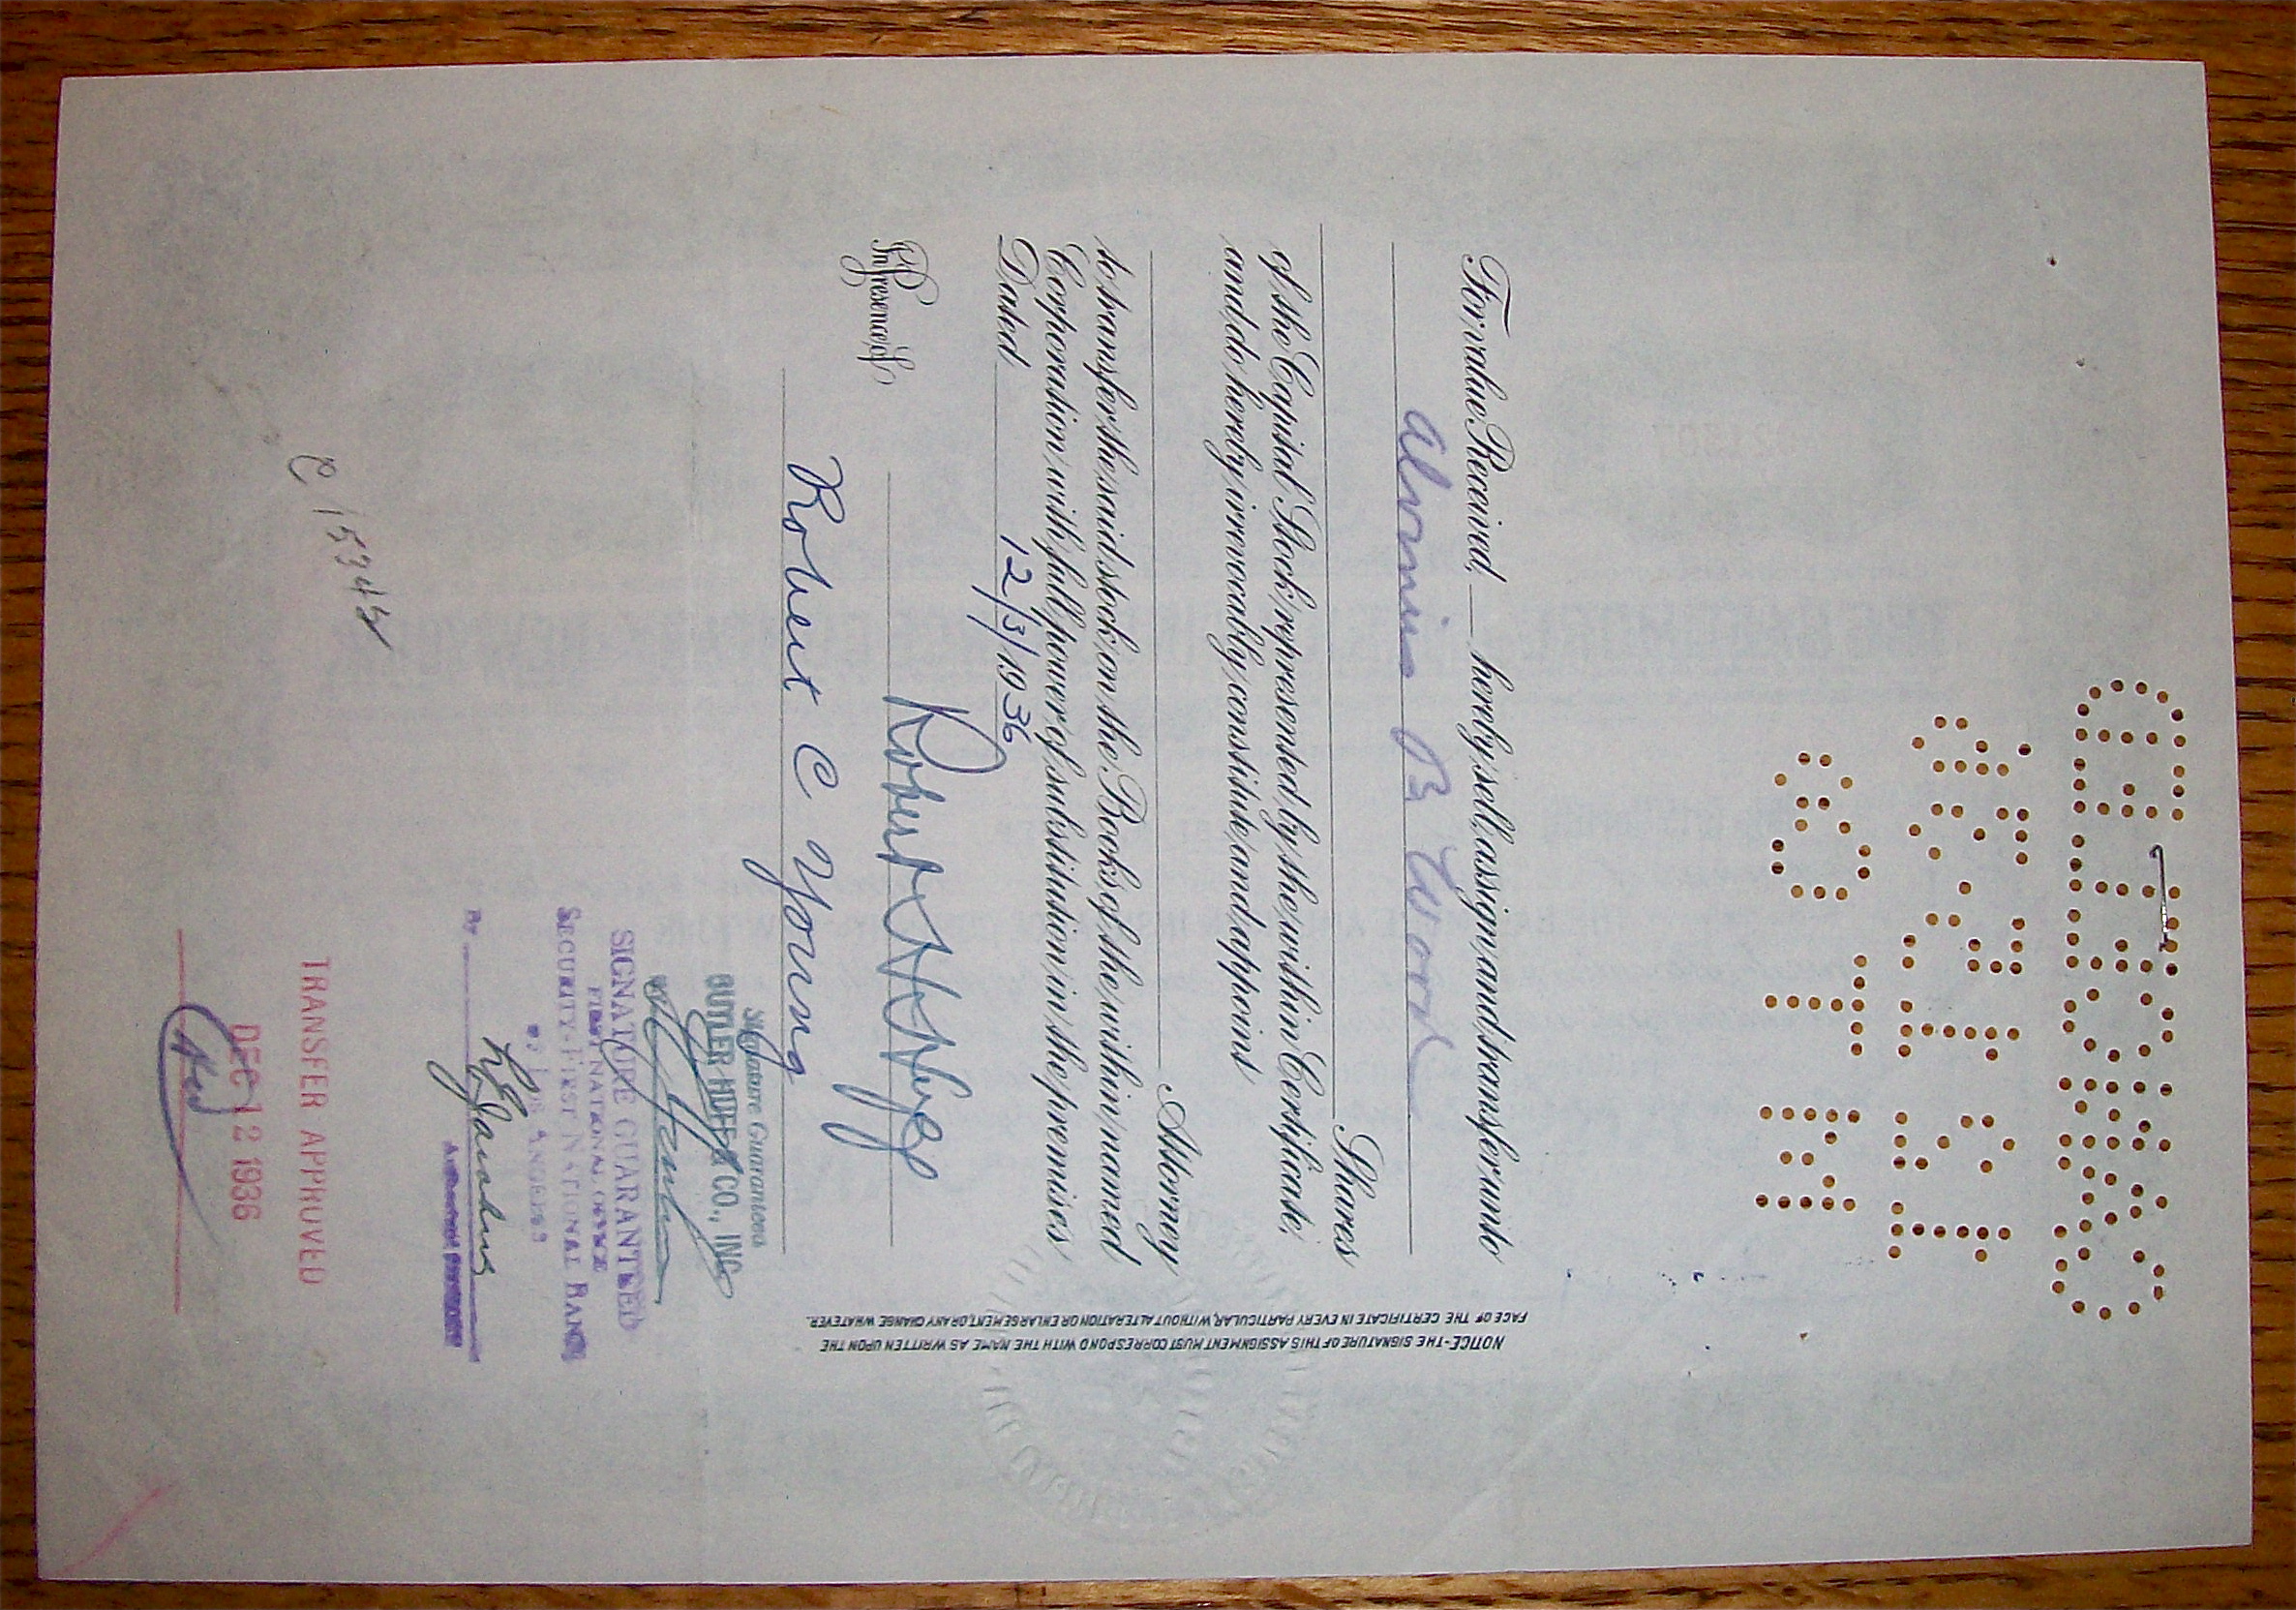 CANCELLED
For value Received, hereby sell, assign and transfer unto
B
Shares
of the Capital Stock represented by the within Certificate,
and do hereby irrevocably constitute and appoint
Attorney
to transfer the said stock on the Books of the within named
Corporation with full power of substitution in the premises
Dated 12/3/1936
In presence of
Robert
Robert C Young
Signature Guaranteed
BUTLER HUFF & CO., INC.
SIGNATURE GUARANTEED
FIRST NATIONAL OFFICE
SECURITY-FIRST NATIONAL BANK
OF LOS ANGELES
By
Authorized Signature
C 15345
TRANSFER APPROVED
DEC 12 1936
NOTICE-THE SIGNATURE OF THIS ASSIGNMENT MUST CORRESPOND WITH THE NAME AS WRITTEN UPON THE
FACE OF THE CERTIFICATE IN EVERY PARTICULAR, WITHOUT ALTERATION OR ENLARGEMENT, OR ANY CHANGE WHATEVER.